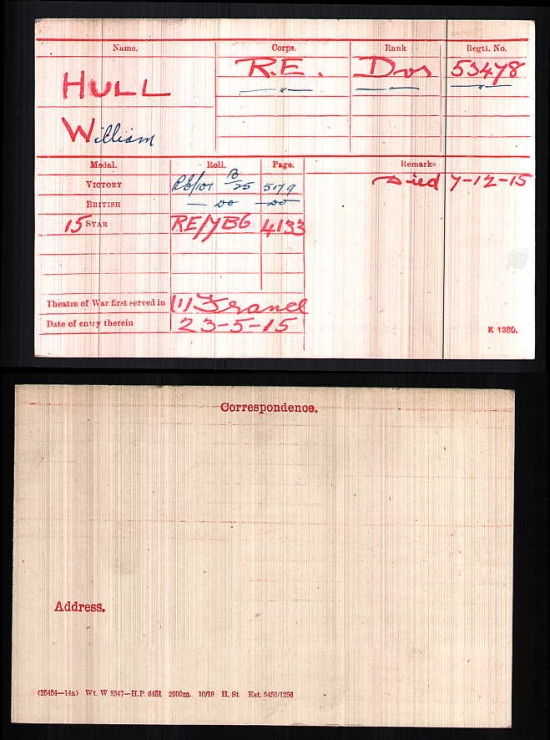 Name. Corps. Rank Regtl. No.
HULL R.E. Dvr 53478
William " "
Medal. Roll. Page. Remarks
VICTORY RE/101 B/25 5179 Died 7-12-15
BRITISH — DO — — DO —
15 STAR RE/7B6 4133
Theatre of War first served in (1) France
Date of entry therein 23-5-15
K 1380.
Correspondence.
Address.
(25454—14a) Wt. W 3347—H.P. 6451 2000m. 10/19 H. St. Est. 5450/1256